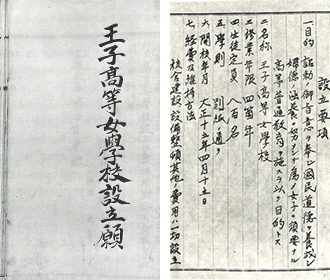 王子高等女學校設立願
設立要項
一、目的 詔勅ノ御旨意ヲ奉シ國民道德ヲ養成シ
婦德ノ涵養ニ努メ
女子ニ須要ナル
高等ノ普通教育ヲ施スヲ以テ目的トス
二、名称 王子高等女學校
三、修業年限 四箇年
四、生徒定員 八百名
五、學則 別紙ノ通リ
六、開校年月 大正十五年四月十五日
七、經費及維持方法
校舎建設、設備整頓其他ノ費用ハ一切設立